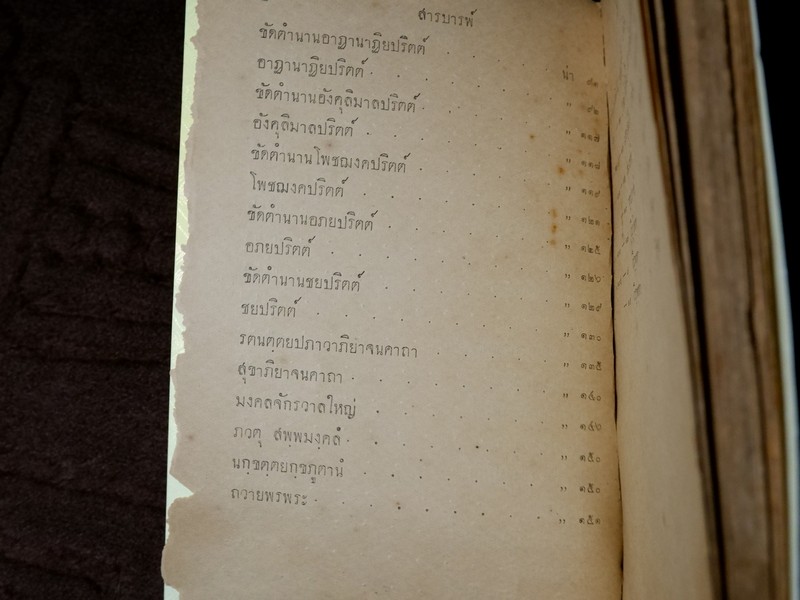 สารบารพ์
ขัดตำนานอาฏานาฏิยปริตต์ น่า ๙๑
อาฏานาฏิยปริตต์ " ๙๒
ขัดตำนานอังคุลิมาลปริตต์ " ๑๑๗
อังคุลิมาลปริตต์ " ๑๑๘
ขัดตำนานโพชฌงคปริตต์ " ๑๑๙
โพชฌงคปริตต์ " ๑๒๑
ขัดตำนานอภยปริตต์ " ๑๒๕
อภยปริตต์ " ๑๒๖
ขัดตำนานชยปริตต์ " ๑๒๙
ชยปริตต์ " ๑๓๐
รตนตฺตยปภาวาภิยาจนคาถา " ๑๓๕
สุขาภิยาจนคาถา " ๑๔๐
มงคลจักรวาลใหญ่ " ๑๔๖
ภวตุ สพฺพมงฺคลํ " ๑๕๐
นกฺขตฺตยกฺขภูตานํ " ๑๕๐
ถวายพรพระ " ๑๕๑